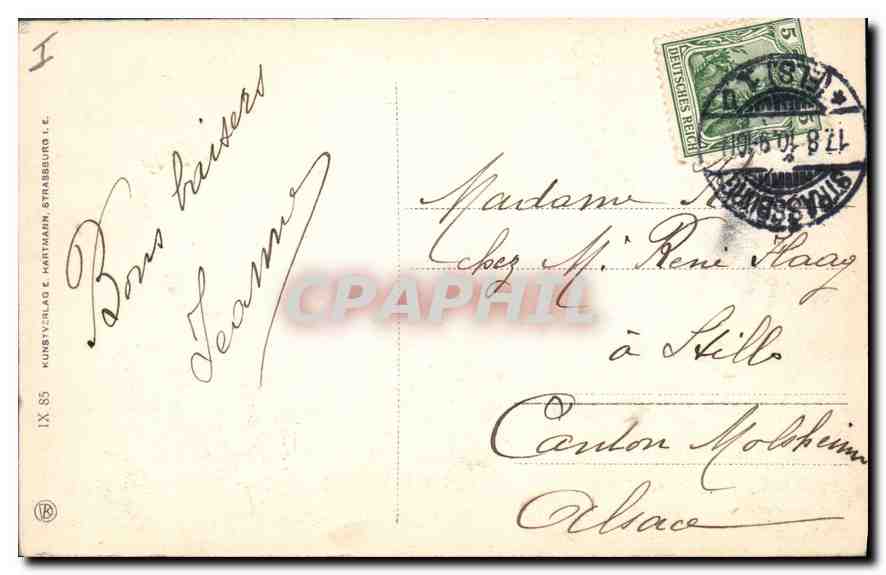 I
Bons baisers
Jeanne
KUNSTVERLAG E. HARTMANN, STRASSBURG I. E.
IX 85
5
DEUTSCHES REICH
STRASSBURG
(ELS)
17.8.10.9-10
Madame
chez Mr René Haag
à Still
Canton Molsheim
Alsace
CPAPHIL